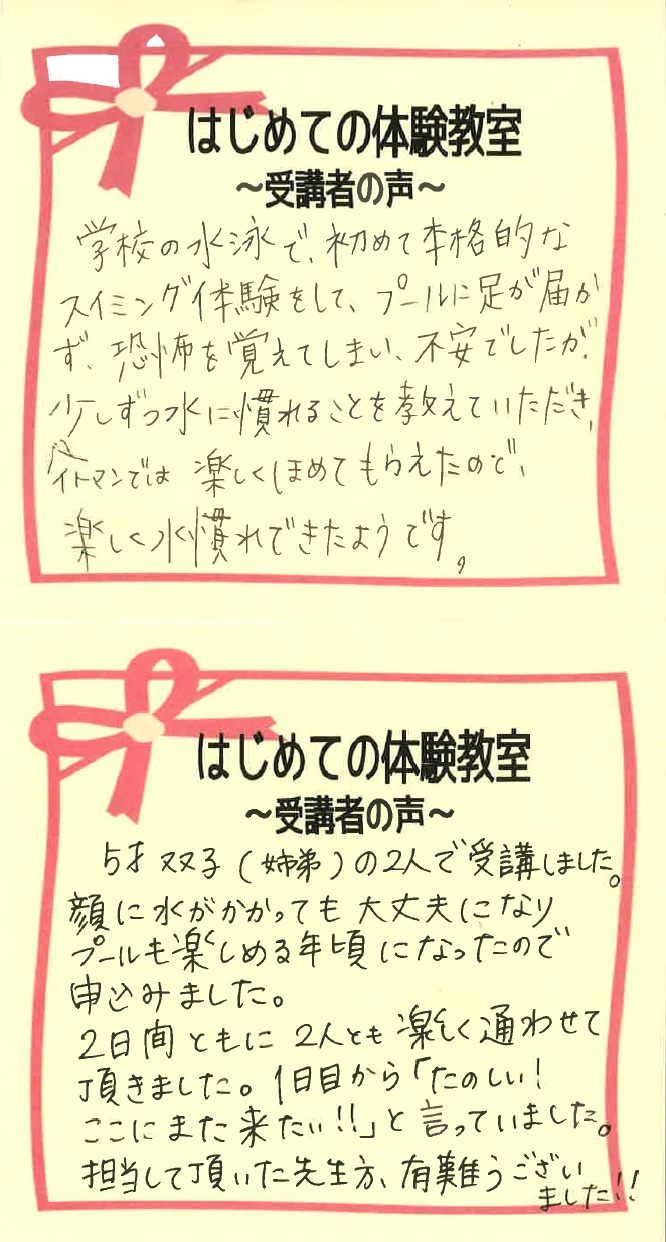 はじめての体験教室
~受講者の声~
学校の水泳で、初めて本格的な
スイミング体験をして、プールに足が届か
ず、恐怖を覚えてしまい、不安でしたが、
少しずつ水に慣れることを教えていただき、
イトマンでは楽しくほめてもらえたので、
楽しく水慣れできたようです。
はじめての体験教室
~受講者の声~
5才双子(姉弟)の2人で受講しました。
顔に水がかかっても大丈夫になり
プールも楽しめる年頃になったので
申込みました。
2日間ともに2人とも楽しく通わせて
頂きました。1日目から「たのしい!
ここにまた来たい!!」と言っていました。
担当して頂いた先生方、有難うござい
ました!!